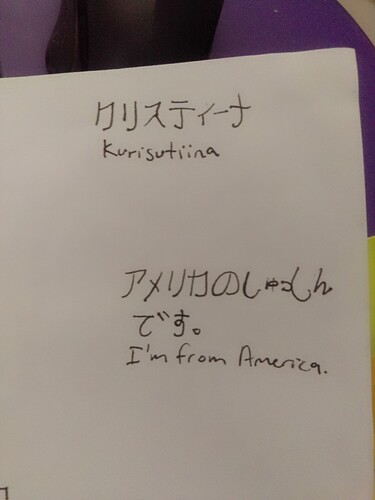 クリスティーナ
Kurisutiina
アメリカのしゅっしん
です。
I'm from America.